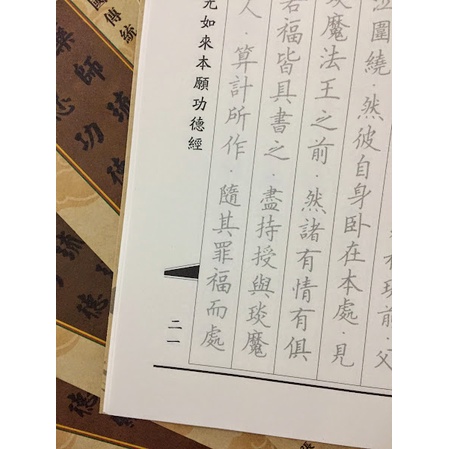 現前·父
泣圍繞·然彼自身卧在本處·見
琰魔法王之前·然諸有情有俱
若福皆具書之·盡持授與琰魔
人·算計所作·隨其罪福而處
光如來本願功德經
二一
國傳統
藥師
功德
號
德